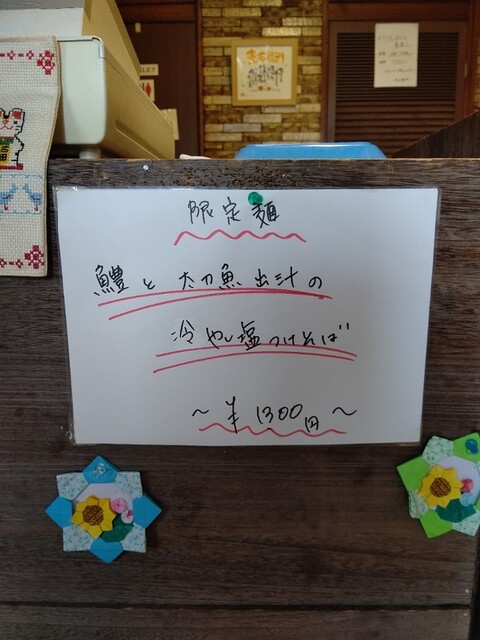 限定麺
鱧と太刀魚出汁の
冷やし塩つけそば
～¥1300円～